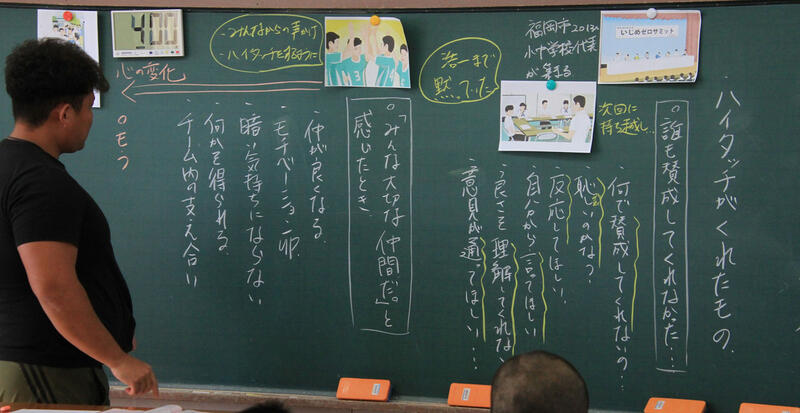 ハイタッチがくれたもの.
○誰も賛成してくれなかった…
・何で賛成してくれないの…
・恥しいのかな?
・反応してほしい.
・自分から言ってほしい
・良さを理解してくれない
・意見が通ってほしい…
福岡市2013.
小中学校代表
が集まる
いじめゼロサミット
次回に
持ち越し…
浩一まで
黙っていた
○「みんな大切な仲間だ。」と
感じたとき
・仲が良くなる.
・モチベーションup
・暗い気持ちにならない
・何かを得られる.
・チーム内の支え合い
・みんなからの声かけ
・ハイタッチをするように
4:00
心の変化
○もっ